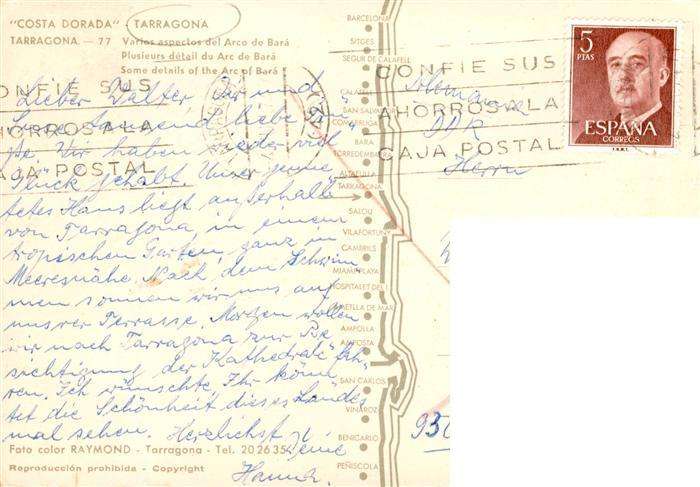 "COSTA DORADA" - TARRAGONA
TARRAGONA. — 77 Varios aspectos del Arco de Bará
Plusieurs détail du Arc de Bará
Some details of the Arc of Bará
Lieber Walter Du und
tausend liebe
Wir haben wieder viel
Glück gehabt. Unser gemie
tetes Haus liegt außerhalb
von Tarragona, in einem
tropischen Garten, ganz in
Meeresnähe. Nach dem Schwim
men sonnen wir uns auf
unsrer Terrasse. Morgen wollen
wir nach Tarragona zur Be
sichtigung der Kathedrale fah
ren. Ich wünschte, Ihr könn
tet die Schönheit dieses Landes
mal sehen. Herzlichst Deine
Hanna.
Foto color RAYMOND - Tarragona - Tel. 20 26 35
Reproducción prohibida - Copyright
CONFIE SUS
AHORROS A LA
CAJA POSTAL
BARCELONA
SITGES
SEGUR DE CALAFELL
CALAFELL
SAN SALVADOR
COMARRUGA
BARA
TORREDEMBARRA
ALTAFULLA
TARRAGONA
SALOU
VILAFORTUNY
CAMBRILS
MIAMI PLAYA
HOSPITALET DEL I.
AMETLLA DE MAR
AMPOLLA
AMPOSTA
SAN CARLOS
VINAROZ
BENICARLO
PEÑISCOLA
CONFIE SUS
AHORROS A LA
CAJA POSTAL
DDR
Herrn
930
5
PTAS
ESPAÑA
CORREOS